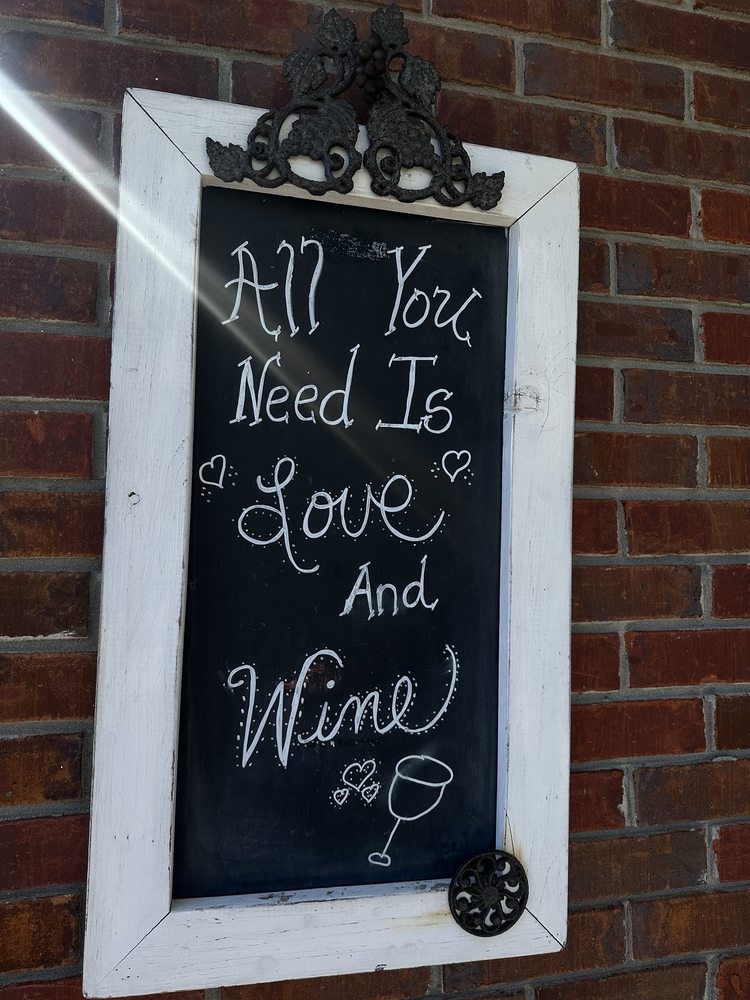 All You
Need Is
Love
And
Wine